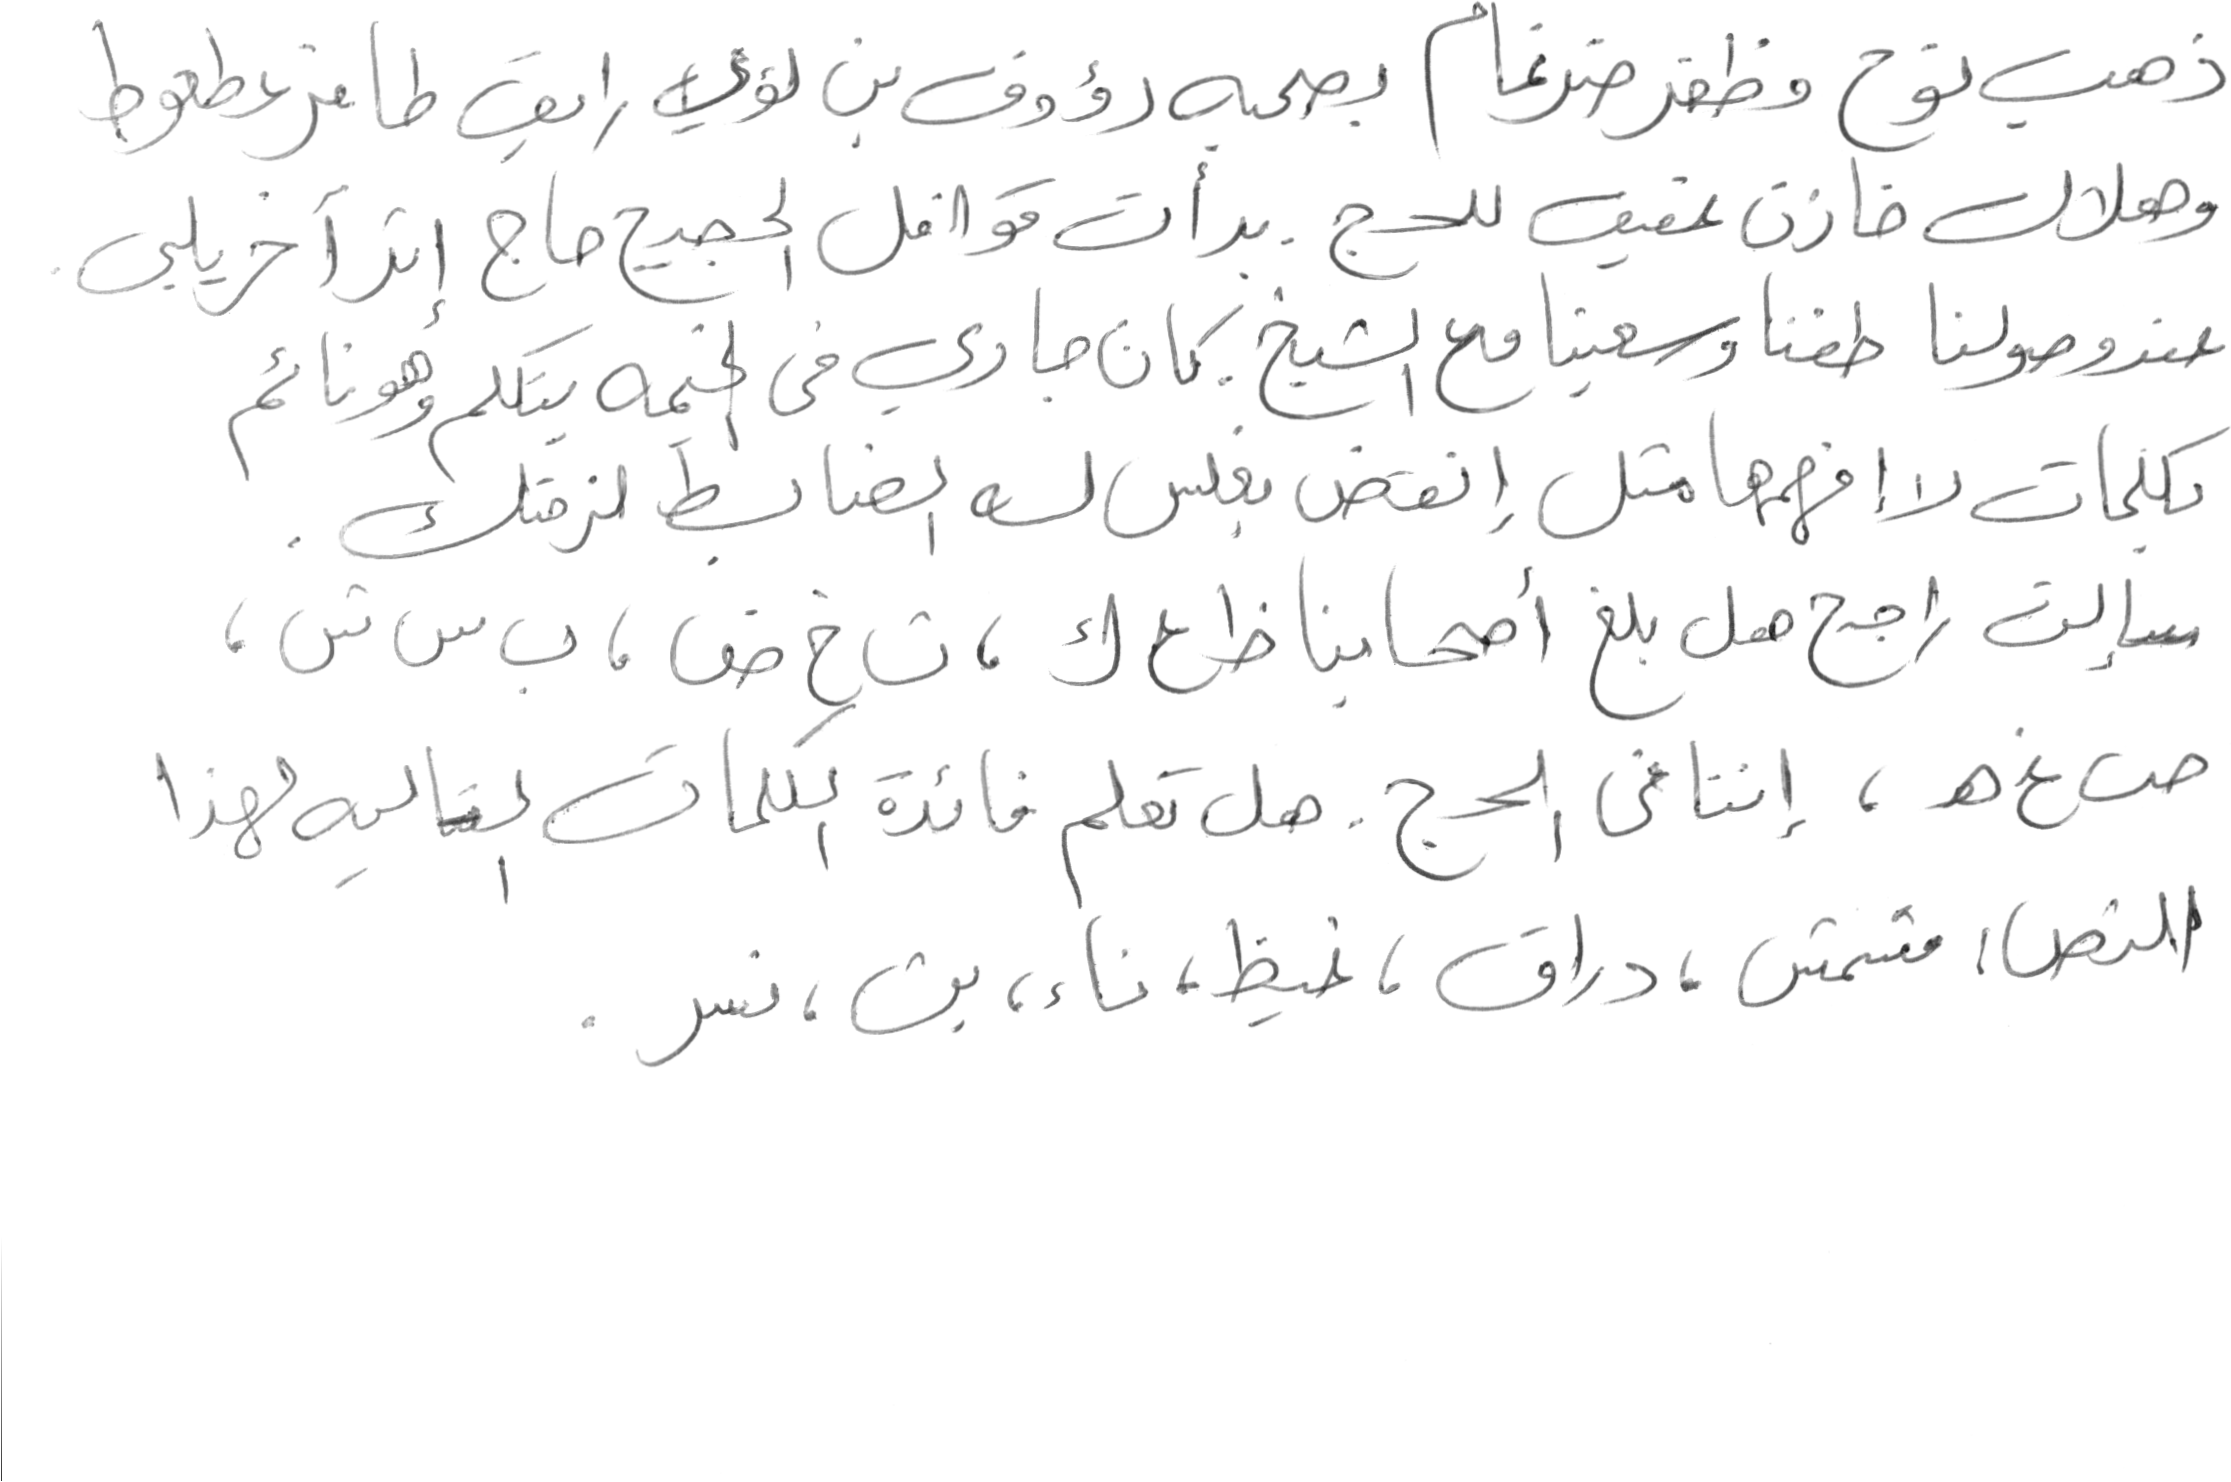 ذهب نوح وظفر ضرغام بصحبه رؤوف بن لؤي رائف طافر عطعوط
وهلال خازن عفيف للحج . بدأت قوافل الحجيج حاج إثر آخر يلبي .
عند وصولنا طفنا وسعينا مع الشيخ . كان جاري في الخيمه يتكلم وهو نائم
بكلمات لا إفهمها مثل إنقض بغلس لسه الضابط لزقتك .
سإلت راجح هل بلغ أصحابنا ظ ع ك ، ث خ ض ، ب س ش ،
ص غ هـ ، إننا في الحج . هل تعلم فائدة الكلمات التاليه لهذا
النص ، مشمش ، دراق ، غيظ ، ناء ، بث ، نسر .